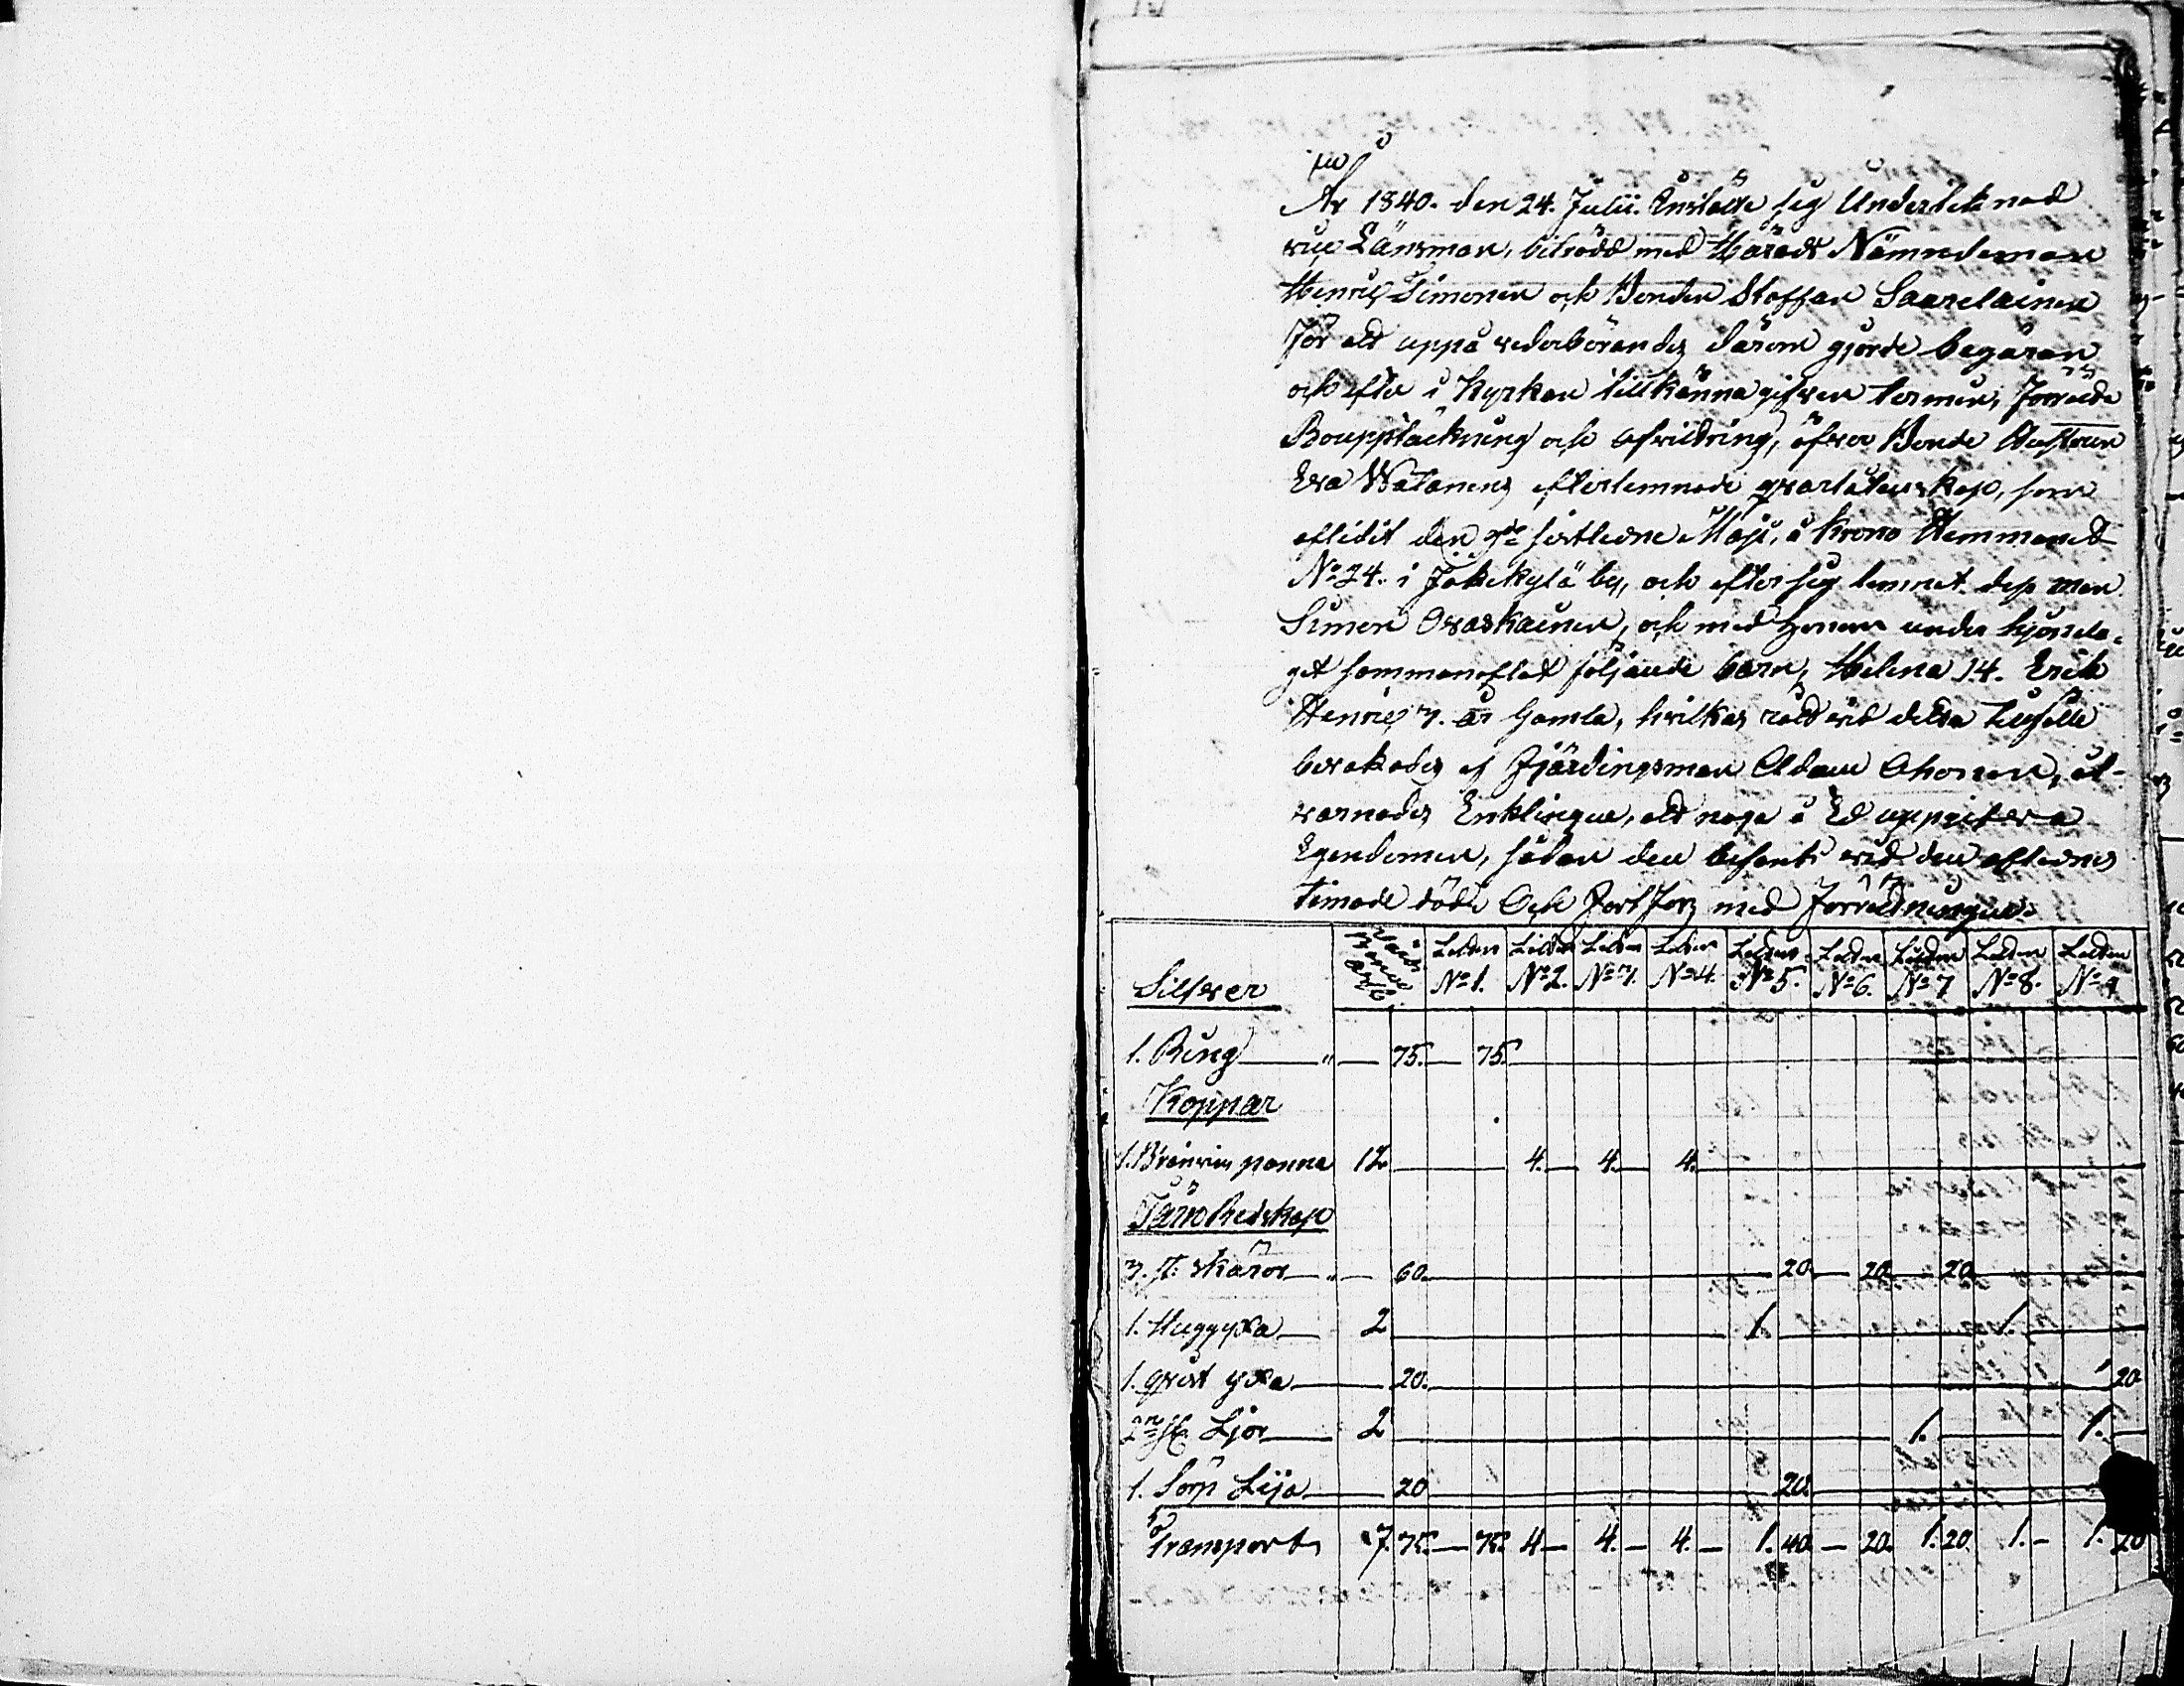 År 1840. den 24. Julii. Instälte sig Underteknad
vice Länsman, biträdd med Härads Nämndeman
Henric Simonen och Bonden Staffan Saarelainen
för att uppå vederbörandes därom gjorde begäran
och efter i Kyrkan tillkänna gifven termin, förrätta
Bouppteckning och afvittring, öfver Bonde Hustrun
Eva Watanens efterlemnade qvarlåtenskap, som
aflidit den sistledne Maji, å Krono Hemmanet
No 24. i Jokikylä by, och efter sig lemnat dess man
Simon Ovaskainen, och med honom under hjonela-
get sammanaflat följande barn, Helena 14. Erik
Henric 7. år Gamla, hvilkas rätt vid detta tillfälle
bevakades af Fjärdingsman Adam Ahonen, åt-
varnades Enklingen, att noga å Ed uppgifva
Egendomen, sådan den befants vid den aflednes
timade död. Och Fortfors med Förrättningen.
Silfver No 1. No 2. No 3. No 4. No 5. No 6. No 7 No 8. No 9
1. Ring " — 75. — 75.
Koppar
1. Bränvins panna 12 4. — 4. — 4.
Järn Redskap
3. st: skäror " — 60. 20. — 20. — 20.
1. Huggyxa 2 1. 1.
1. yxa 20. 1 20
2ne st. Ljor 2 1. 1.
1. Sörp Lija 20 20.
Transport 17. 75. — 75. 4 — 4. — 4. — 1. 40. — 20. 1. 20 1. — 1. 20